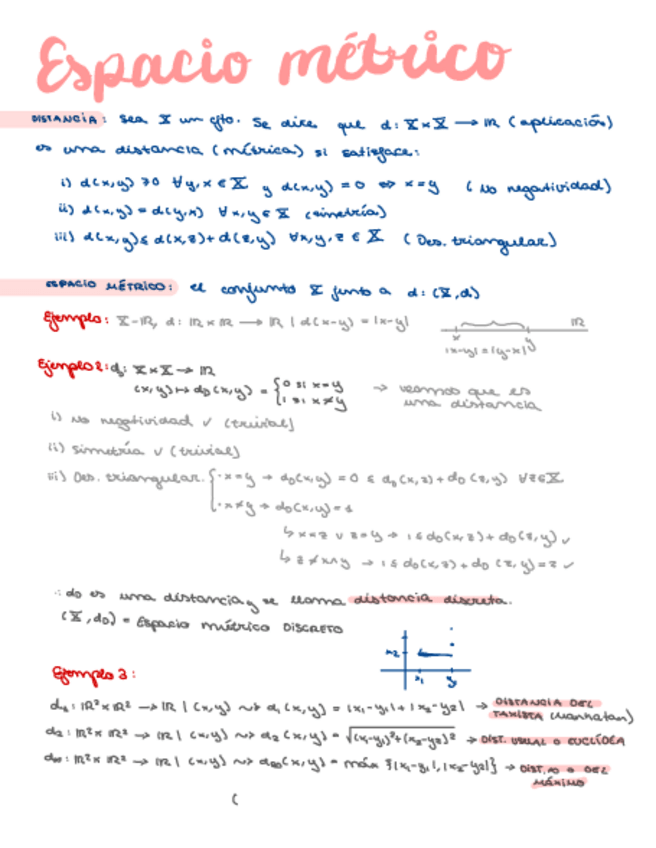 Espacio métrico
DISTANCIA: Sea X un cjto. Se dice que d: X×X → IR (aplicación)
es una distancia (métrica) si satisface:
i) d(x,y) ≥0 ∀y,x∈X y d(x,y)=0 ⇔ x=y (No negatividad)
ii) d(x,y) = d(y,x) ∀x,y∈X (simetría)
iii) d(x,y)≤ d(x,z)+d(z,y) ∀x,y,z ∈ X (Des. triangular)
ESPACIO MÉTRICO: el conjunto X junto a d: (X,d)
Ejemplo: X=IR, d: IR×IR → IR | d(x-y) = |x-y|
IR
x y
|x-y|=|y-x|
Ejemplo 2: d₀: X×X → IR
(x,y) ↦ d₀(x,y) = { 0 si x=y
1 si x≠y
→ veamos que es
una distancia
i) No negatividad ✓ (trivial)
ii) Simetría ✓ (trivial)
iii) Des. triangular. { · x=y → d₀(x,y) = 0 ≤ d₀(x,z)+d₀(z,y) ∀z∈X
· x≠y → d₀(x,y)=1
↳ x=z ∨ z=y → 1≤d₀(x,z)+d₀(z,y) ✓
↳ z≠x∧y → 1≤d₀(x,z)+d₀(z,y)=2 ✓
∴ d₀ es una distancia y se llama distancia discreta.
(X,d₀) = Espacio métrico DISCRETO
x₂
x₁ y₁
Ejemplo 3:
d₁: IR²×IR² → IR | (x,y) ⇝ d₁(x,y) = |x₁-y₁|+|x₂-y₂| → DISTANCIA DEL
TAXISTA (Manhatan)
d₂: IR²×IR² → IR | (x,y) ⇝ d₂(x,y) = √(x₁-y₁)²+(x₂-y₂)² → DIST. USUAL O EUCLÍDEA
d∞: IR²×IR² → IR | (x,y) ⇝ d∞(x,y) = máx {|x₁-y₁|,|x₂-y₂|} → DIST. ∞ O DEL
MÁXIMO
(